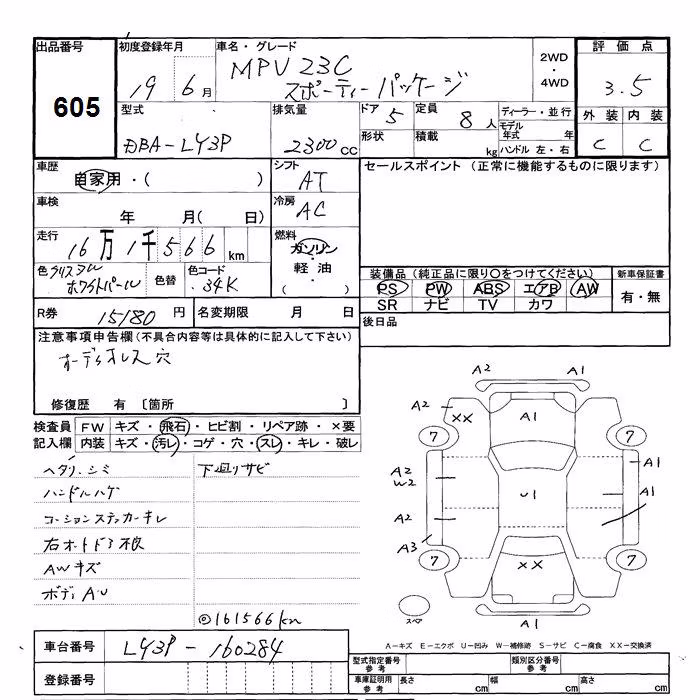 出品番号 初度登録年月 車名・グレード 2WD・4WD 評価点
605 19 6月 MPV 23C スポーティーパッケージ 3.5
型式 排気量 ドア 5 定員 8人 ディーラー・並行 外装 内装
DBA-LY3P 2300CC 形状 積載 kg モデル年式 年 ハンドル 左・右 C C
車歴 自家用・( ) シフト AT セールスポイント (正常に機能するものに限ります)
車検 年 月(日) 冷房 AC
走行 16万1千566km 燃料 ガソリン・軽油・( )
色 クリスタルホワイトパール 色替 色コード 34K
装備品(純正品に限り○をつけてください) 新車保証書
PS PW ABS エアB AW 有・無
SR ナビ TV カワ
R券 15180円 名変期限 月 日 後日品
注意事項申告欄(不具合内容等は具体的に記入して下さい)
オーディオレス穴
修復歴 有 〔箇所 〕
検査員 FW キズ・飛石・ヒビ割・リペア跡・×要
記入欄 内装 キズ・汚レ・コゲ・穴・スレ・キレ・破レ
ヘタリ、シミ 下廻りサビ
ハンドルハゲ
コーションステッカーキレ
右オートドア不良
AWキズ
ボディAU
◎161566km
A2 A1
A2 XX A1
7 7
A2 W2 U1 A1
A2 A1
A3
7 XX 7
スペア A1
A-キズ E-エクボ U-凹み W-補修跡 S-サビ C-腐食 XX-交換済
車台番号 LY3P-160284
登録番号
型式指定番号 参考 類別区分番号 参考
車庫証明用 参考 長さ cm 幅 cm 高さ cm